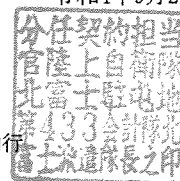 分任契約担当
官陸上自衛隊
北富士駐屯地
第433会計隊北
行
富士派遣隊長之印